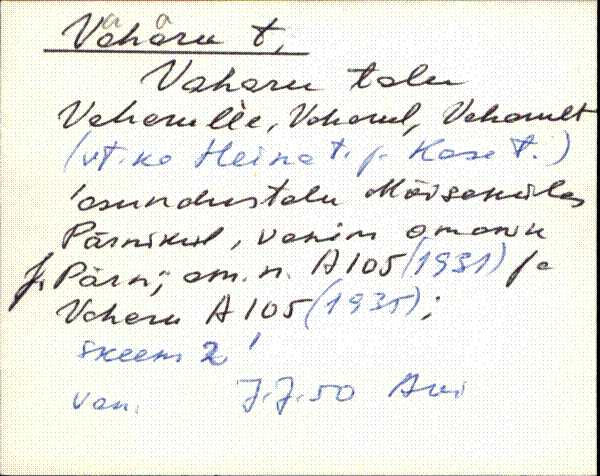 Vaharu t.
Vaharu talu
Vaharulle, Vaharul, Vaharult
(vt. ka Heina t. ja Kase t.)
'asundustalu Mõisaküla
Pärniküla, vanim omanik
J. Pärn; om. n. A105 (1931) ja
Vaharu A105 (1935);
skeem 2'
van. J.J. 50 Avi